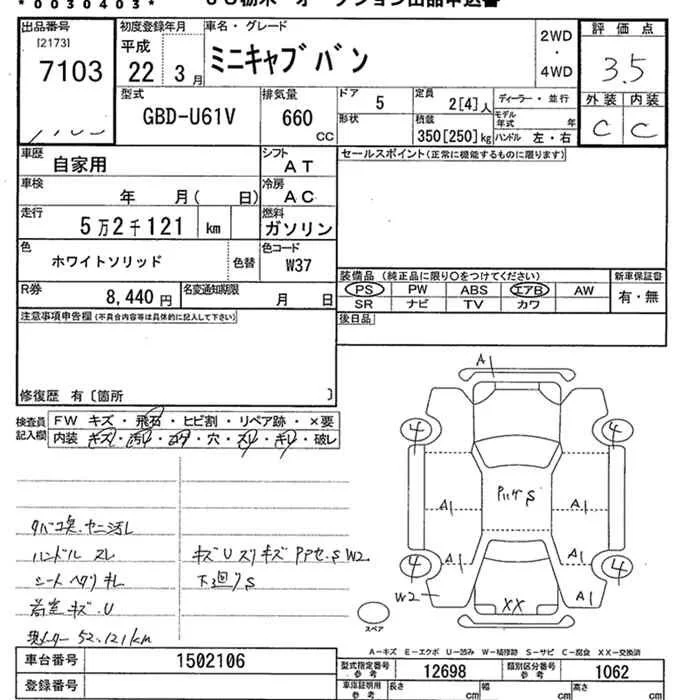 *0030403*
出品番号 初度登録年月 車名・グレード 2WD・4WD 評価点
[2173] 平成
7103 22 3月 ミニキャブバン 3.5
型式 排気量 ドア 定員 ディーラー・並行 外装 内装
GBD-U61V 660CC 5 2[4]人 モデル年式 年 C C
形状 積載 350[250]kg ハンドル 左・右
車歴 自家用 シフト AT セールスポイント(正常に機能するものに限ります)
車検 年 月( 日) 冷房 AC
走行 5万2千121 km 燃料 ガソリン
色 ホワイトソリッド 色替 色コード W37
装備品(純正品に限り○をつけてください) 新車保証書
R券 8,440円 名変通知期限 月 日
PS PW ABS エアB AW 有・無
SR ナビ TV カワ
注意事項申告欄(不具合内容等は具体的に記入して下さい) 後日品
修復歴 有〔箇所 〕
検査員記入欄 FW キズ・飛石・ヒビ割・リペア跡・×要
内装 キズ・汚レ・コゲ・穴・スレ・キレ・破レ
A1
4 4
A1 A1
A1 A1
4 4
A1
W2
XX
タバコ臭.ヤニ汚レ
ハンドル スレ
シート ヘタリ キレ
荷室 キズ.U
キズUスリキズ
W2
下回りS
52,121km
スペア
A-キズ E-エクボ U-凹み W-補修跡 S-サビ C-腐食 XX-交換済
車台番号 1502106
型式指定番号参考 12698 類別区分番号参考 1062
登録番号
車庫証明用参考 長さ cm 幅 cm 高さ cm